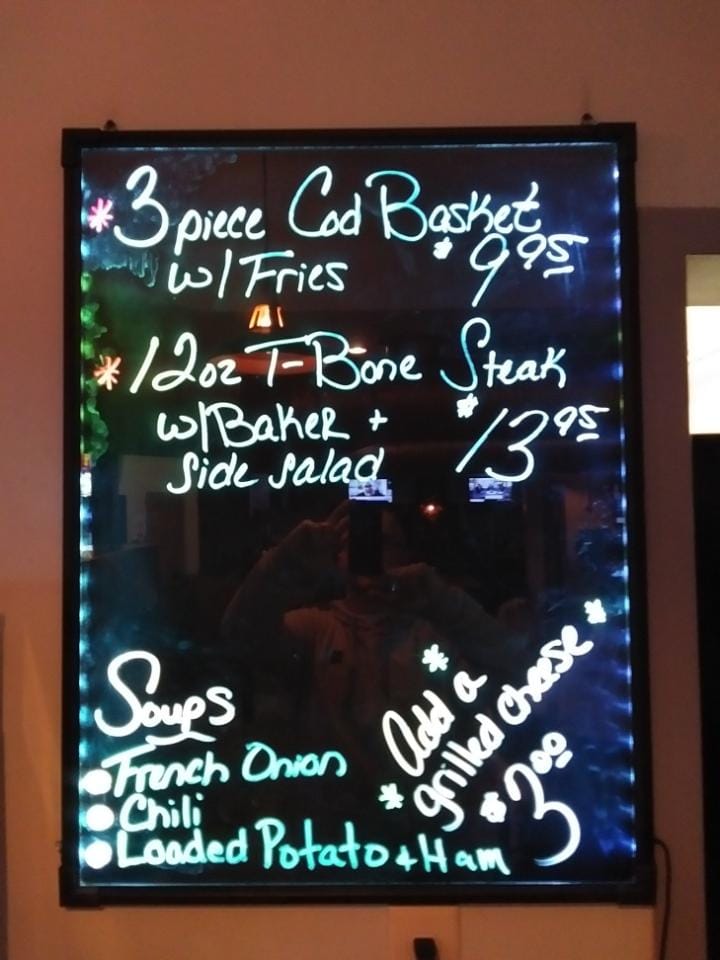 * 3 piece Cod Basket
w/ Fries $9.95
* 12oz T-Bone Steak
w/Baker + $13.95
side salad
Soups
• French Onion
• Chili
• Loaded Potato + Ham
* Add a
* grilled cheese *
$3.00